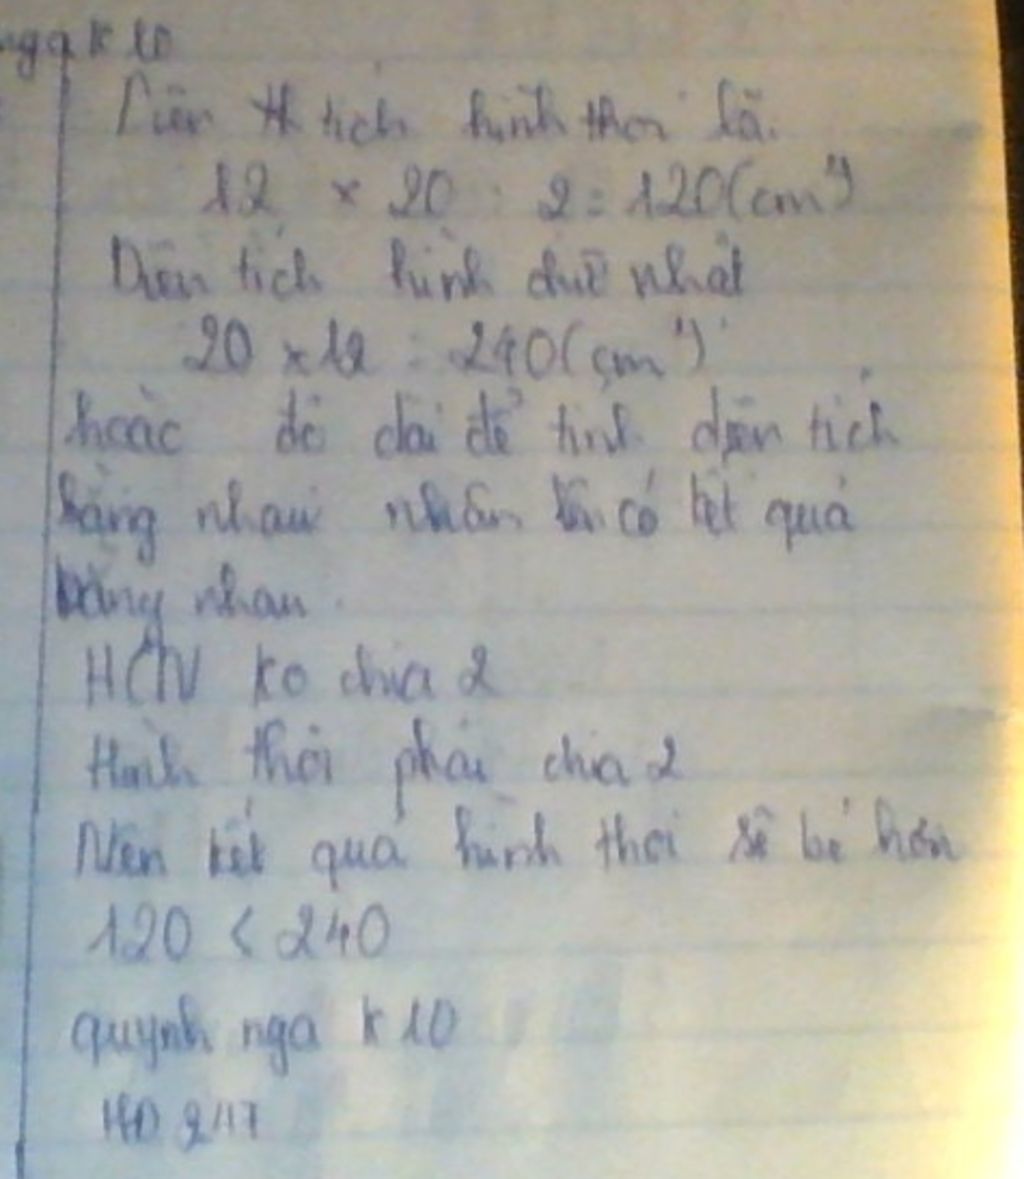 nga k 10
Diện tích hình thoi là.
12 × 20 : 2 = 120(cm²)
Diện tích hình chữ nhật
20 × 12 = 240(cm²)
hoặc độ dài để tính diện tích
bằng nhau nhân có kết quả
bằng nhau.
HCN ko chia 2
Hình thoi phải chia 2
Nên kết quả hình thoi sẽ bé hơn
120 < 240
quynh nga k 10
HD 247